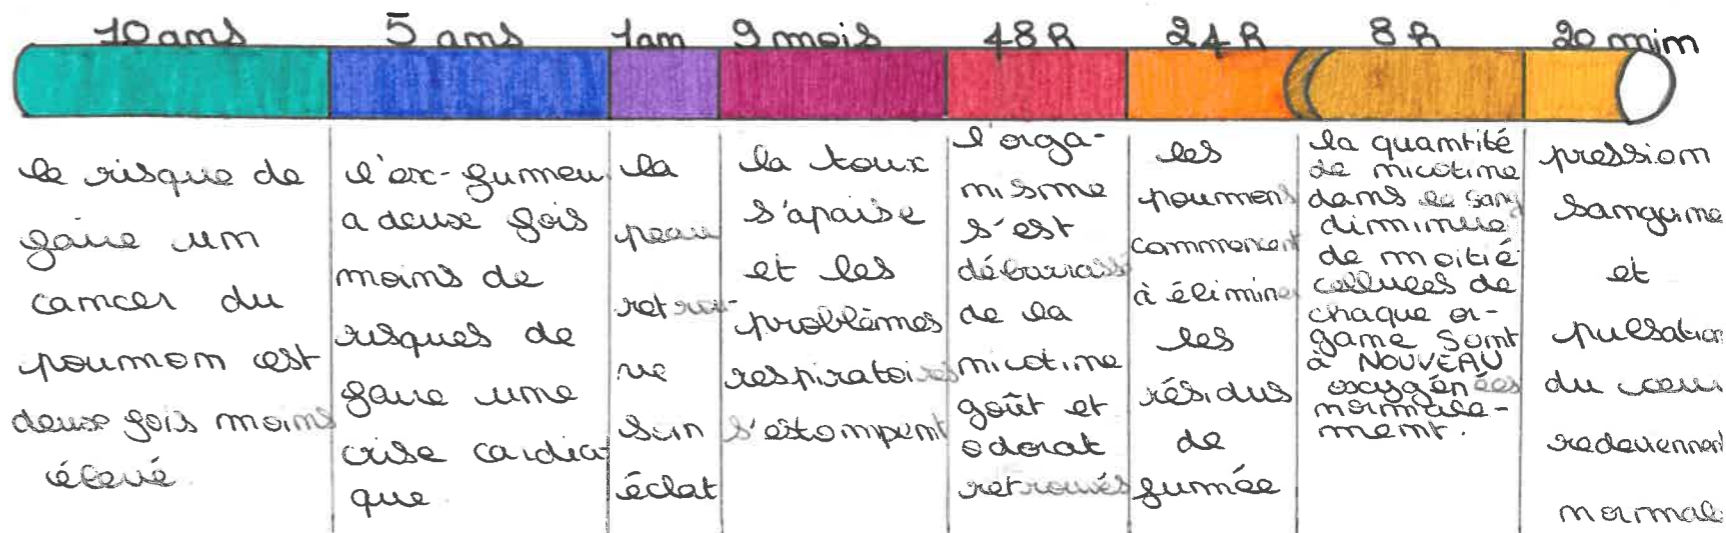 10 ans
5 ans
1 an
9 mois
48 h
24 h
8 h
20 min
le risque de
faire un
cancer du
poumon est
deux fois moins
élevé
l'ex-fumeur
a deux fois
moins de
risques de
faire une
crise cardia-
que
la
peau
retrou-
ve
son
éclat
la toux
s'apaise
et les
problèmes
respiratoires
s'estompent
l'orga-
nisme
s'est
débarrassé
de la
nicotine
goût et
odorat
retrouvés
les
poumons
commencent
à éliminer
les
résidus
de
fumée
la quantité
de nicotine
dans le sang
diminue
de moitié
cellules de
chaque or-
gane sont
à NOUVEAU
oxygénées
normale-
ment.
pression
sanguine
et
pulsations
du coeur
redeviennent
normales